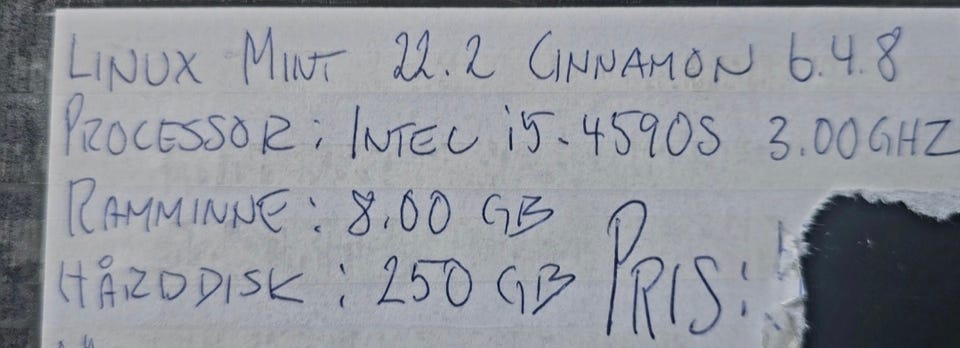 LINUX MINT 22.2 CINNAMON 6.4.8
PROCESSOR: INTEL i5-4590S 3.00GHZ
RAMMINNE: 8.00 GB
HÅRDDISK: 250 GB PRIS: